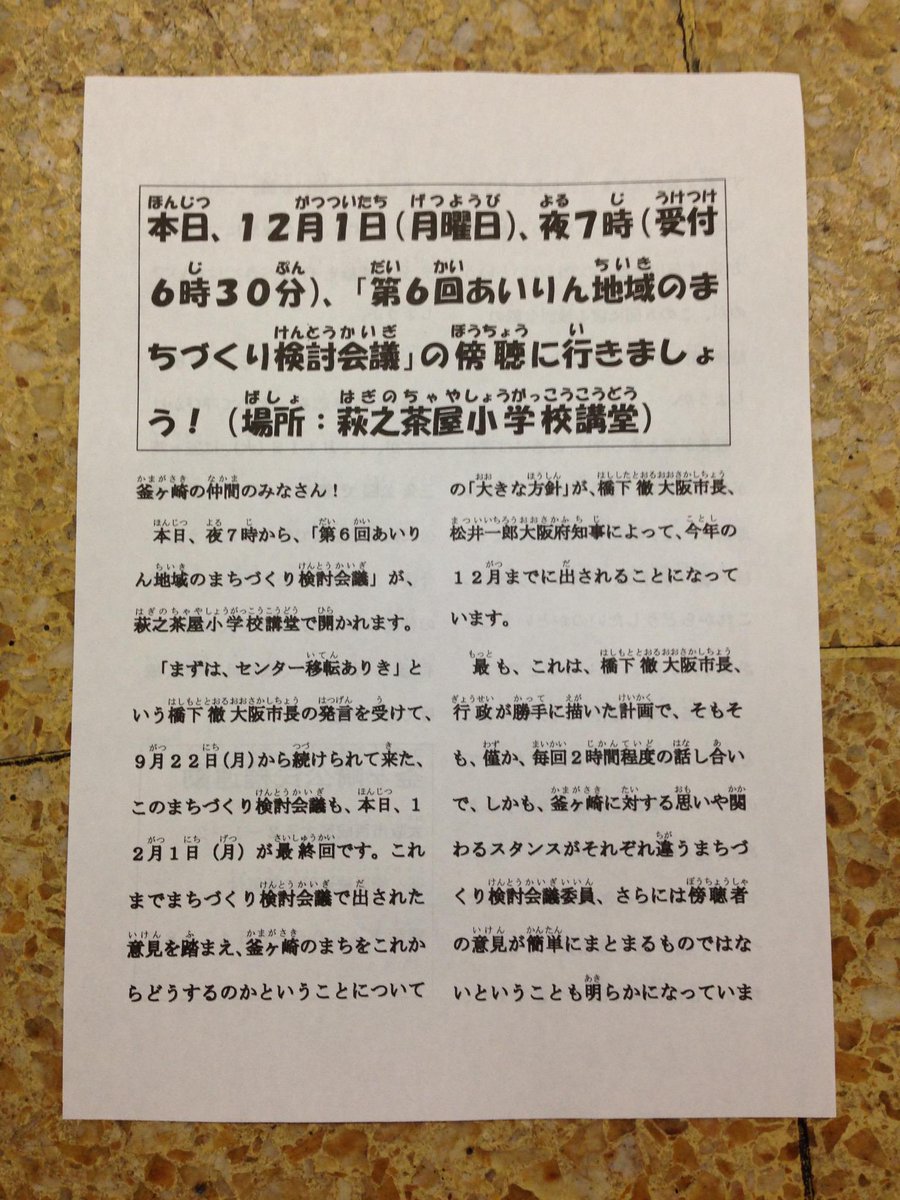 本日、１２月１日（月曜日）、夜７時（受付
６時３０分）、「第６回あいりん地域のま
ちづくり検討会議」の傍聴に行きましょ
う！（場所：萩之茶屋小学校講堂）
釜ヶ崎の仲間のみなさん！
本日、夜７時から、「第６回あいり
ん地域のまちづくり検討会議」が、
萩之茶屋小学校講堂で開かれます。
「まずは、センター移転ありき」と
いう橋下徹大阪市長の発言を受けて、
９月２２日（月）から続けられて来た、
このまちづくり検討会議も、本日、１
２月１日（月）が最終回です。これ
までまちづくり検討会議で出された
意見を踏まえ、釜ヶ崎のまちをこれか
らどうするのかということについて
の「大きな方針」が、橋下徹大阪市長、
松井一郎大阪府知事によって、今年の
１２月までに出されることになって
います。
最も、これは、橋下徹大阪市長、
行政が勝手に描いた計画で、そもそ
も、僅か、毎回２時間程度の話し合い
で、しかも、釜ヶ崎に対する思いや関
わるスタンスがそれぞれ違うまちづ
くり検討会議委員、さらには傍聴者
の意見が簡単にまとまるものではな
いということも明らかになっていま